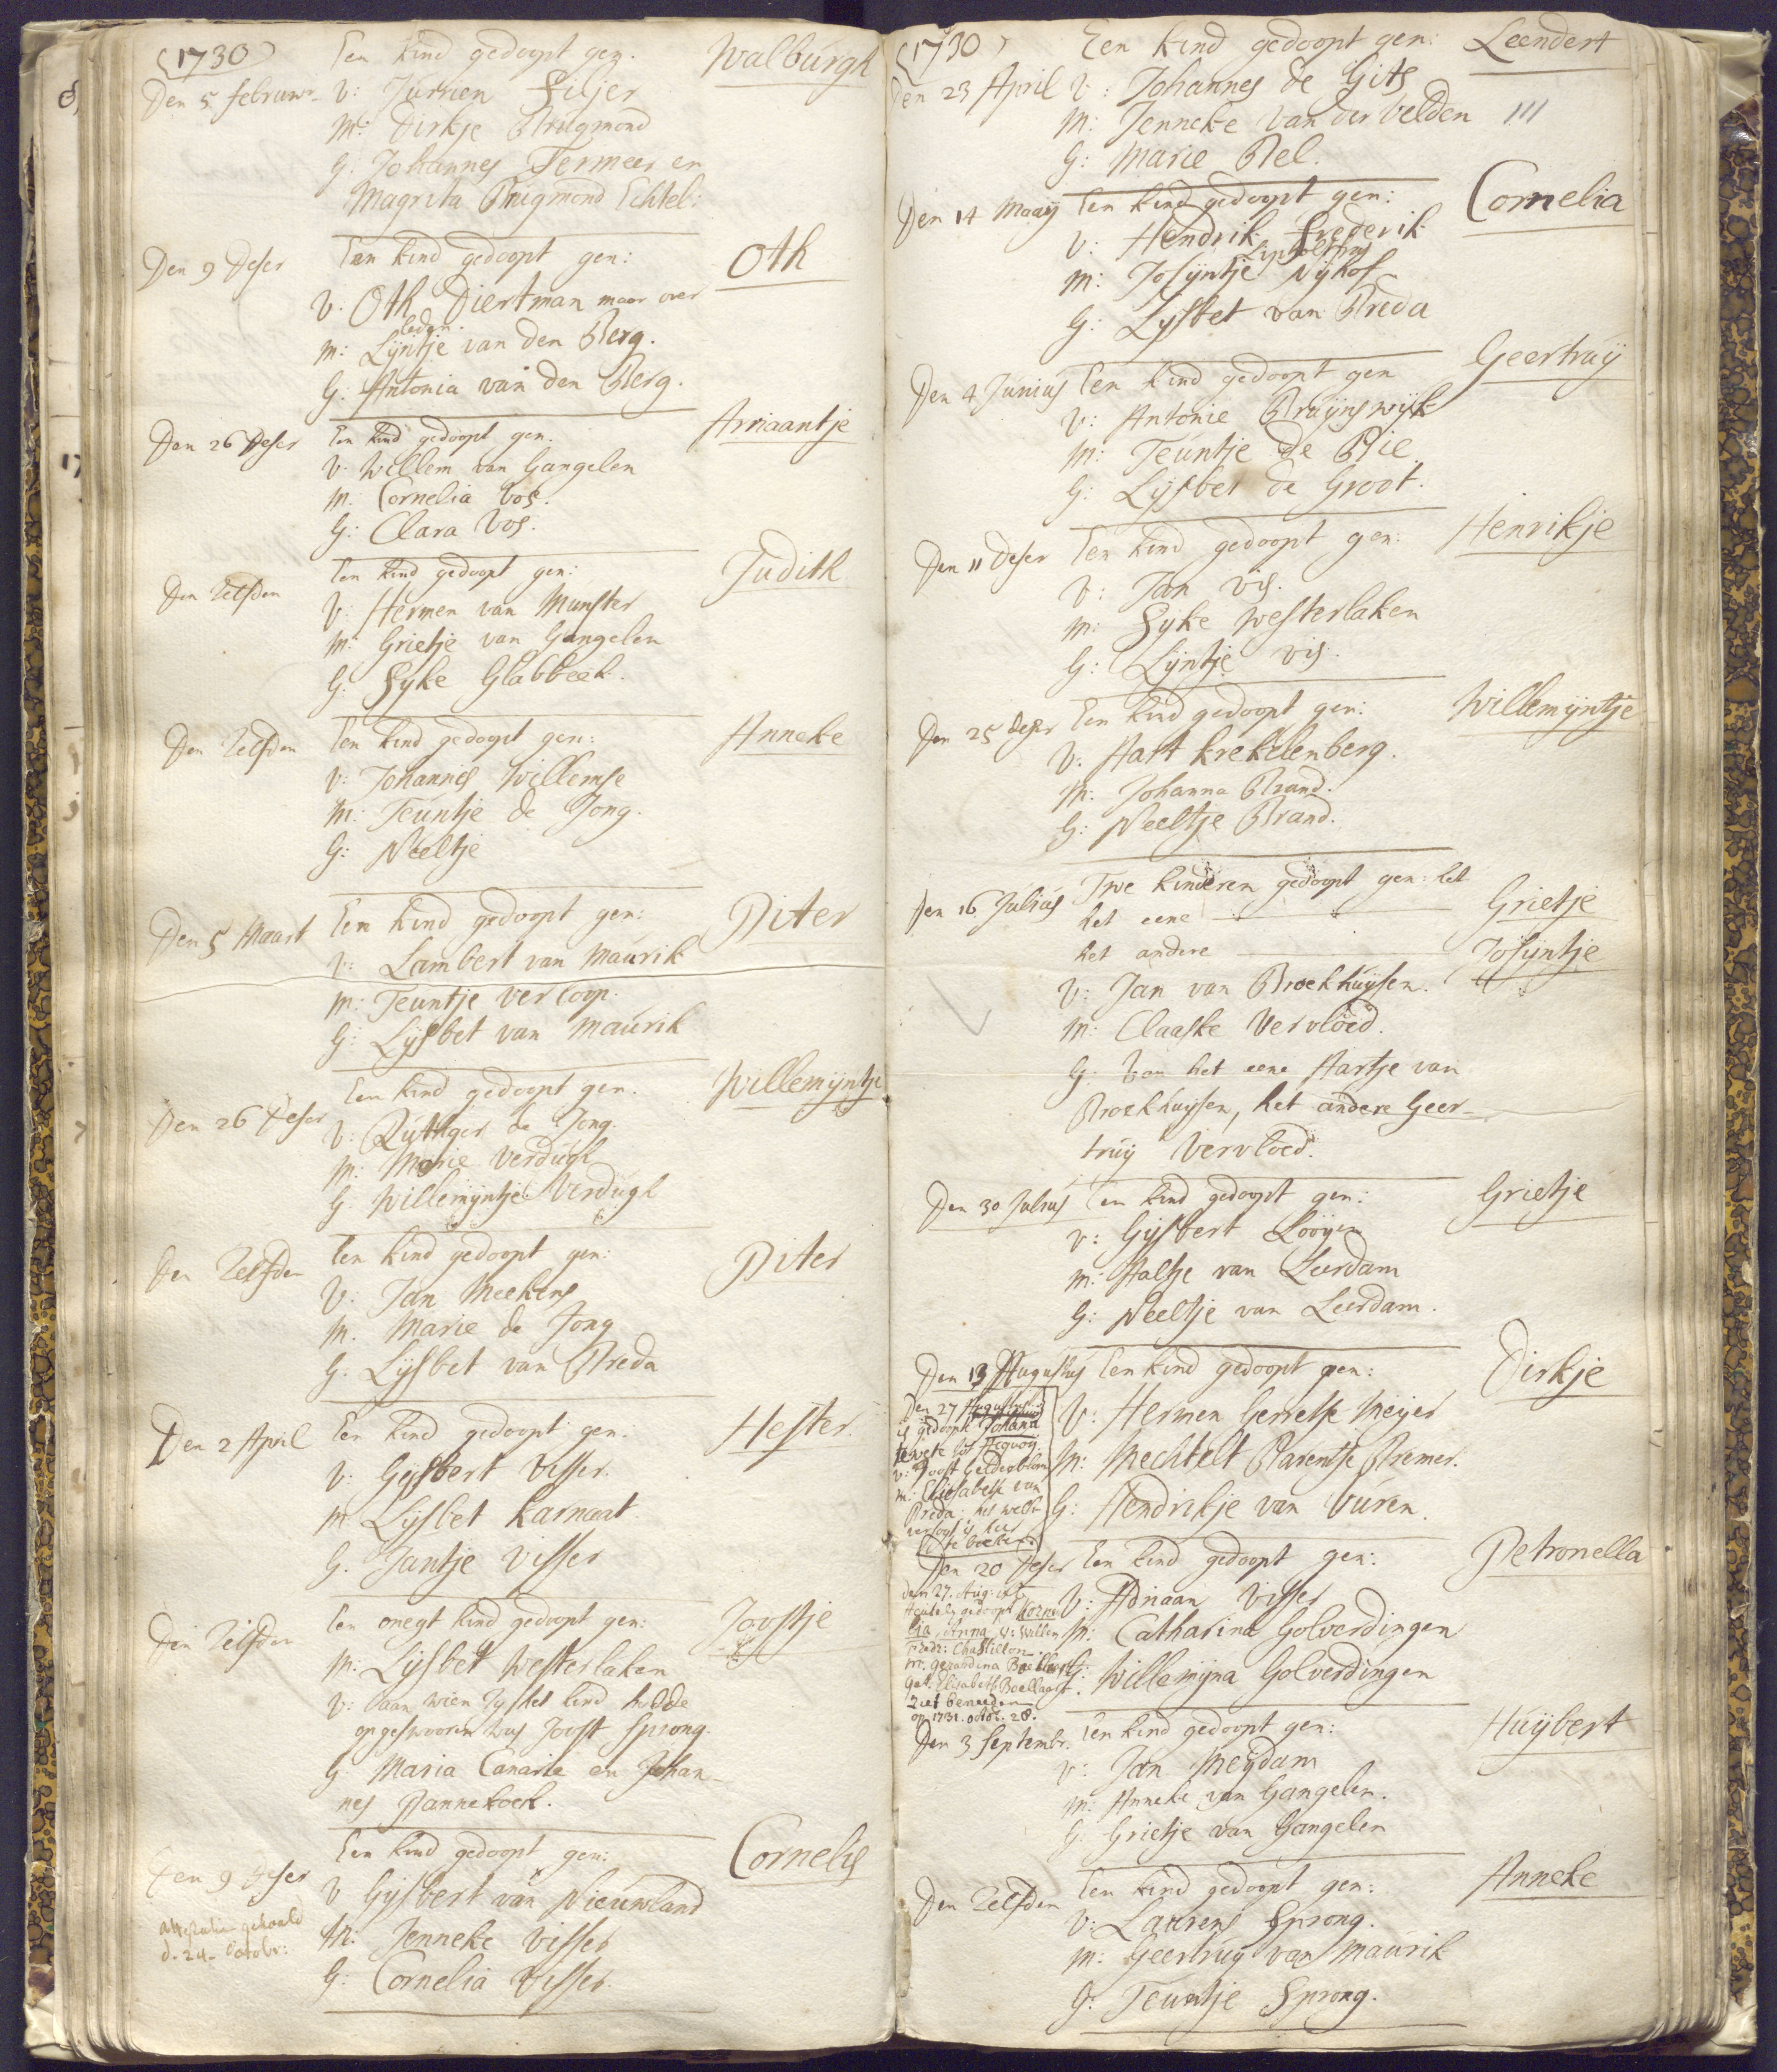 (1730)
Een kind gedoopt gen. Walburgh
Den 5 februar. V: Jurrien Siljer
M: Dirkje Brugmond
G. Johannes Termeer en
Magrita Brugmond Echtel:
Den 9 deser Een kind gedoopt gen: Oth
V. Oth Diertman maar over
leden.
M: Lijntje van den Berg.
G: Antonia van den Berg.
Den 26 deser Een kind gedoopt gen. Ariaantje
V. Willem van Gangelen
M. Cornelia Vos.
G: Clara Vos.
Den Zelfden Een kind gedoopt gen: Judith
V: Hermen van Munster
M: Grietje van Gangelen
G: Syke Glabbeek.
Den Zelfden Een kind gedoopt gen: Anneke
V: Johannes Willemse
M: Teuntje de Jong.
G: Neeltje
Den 5 Maart Een kind gedoopt gen: Piter
V: Lambert van Maurik
M: Teuntje Verloop.
G: Lijsbet van Maurik
Den 26 deser Een kind gedoopt gen. Willemijntje
V: Rutthger de Jong.
M: Marie Verdugh
G. Willemijntje Verdugh
Den Zelfden Een kind gedoopt gen: Piter
V: Jan Meekens
M. Marie de Jong
G. Lijsbet van Breda
Den 2 April Een kind gedoopt gen. Hester.
V: Gijsbert Visser.
M Lijsbet Karnaat.
G. Jantje Visser
Den Zelfden Een onegt kind gedoopt gen: Joostje
M: Lijsbet Westerlaken
V: aan wien zij het kind hadde
opgeswooren was Joost Sprong.
G Maria Canarie en Johan-
nes Pannekoek.
Den 9 deser Een kind gedoopt gen: Cornelis
V Gijsbert van Nieuwland
Attestatie gehaald
d. 24. Octobr:
M: Jenneke Visser
G: Cornelia Visser.
(1730)
Een kind gedoopt gen: Leendert
Den 23 April V: Johannes de Gits
M: Jenneke van der Velden III
G: Marie Bel.
Den 14 Maaij Een kind gedoopt gen: Cornelia
V: Hendrik Frederik
M: Josijntje Nijhof
G: Lijsbet van Breda
Den 4 Junius Een kind gedoopt gen Geertruij
V: Antonie Bruijnswijk
M: Teuntje de Bie
G: Lijsbet de Groot.
Den 11 deser Een kind gedoopt gen: Henrikje
V: Jan Vis.
M: Syke Westerlaken
G: Lijntje Vis.
Den 25 deser Een kind gedoopt gen: Willemijntje
V. Aart Krekelenberg.
M: Johanna Brand.
G: Neeltje Brand.
Den 16 Julius Twe kinderen gedoopt gen: het
het eene Grietje
het andere Josijntje
V: Jan van Broekhuijsen.
M: Claaske Vervloed.
G. Van het eene Aartje van
Broekhuijsen, het andere Geer-
truij Vervloed.
Den 30 Julius Een kind gedoopt gen: Grietje
V: Gijsbert Looijen
M: Aaltje van Leerdam
G: Neeltje van Leerdam.
Den 13 Augustus Een kind gedoopt gen: Dirkje
V: Hermen Gerretse Meijer
M: Mechtelt Barentse Bremer.
G: Hendrikje van Buren.
Den 27 Augustus
is gedoopt Johana
tot Acquoij
V: Joost Gelderblom
M: Elisabeth van
Breda. het welk
versogt is hier
te boeken
Den 20 deser Een kind gedoopt gen: Petronella
V: Adriaan Visser
M: Catharina Golverdingen
G: Willemijna Golverdingen
den 27. Aug. is te
gedoopt Korne
lia, Anna. V: Willem
Fredr: Chastillon
M: Gerardina Boellaart
Get. Elisabeth Boellaart
ziet beneeden
op 1731. octob. 28.
Den 3 Septembr. Een kind gedoopt gen: Huijbert
V: Jan Meijdam
M: Anneke van Gangelen.
G: Grietje van Gangelen
Den Zelfden Een kind gedoopt gen: Anneke
V: Laurens Sprong.
M: Geertruij van Maurik
G: Teuntje Sprong.